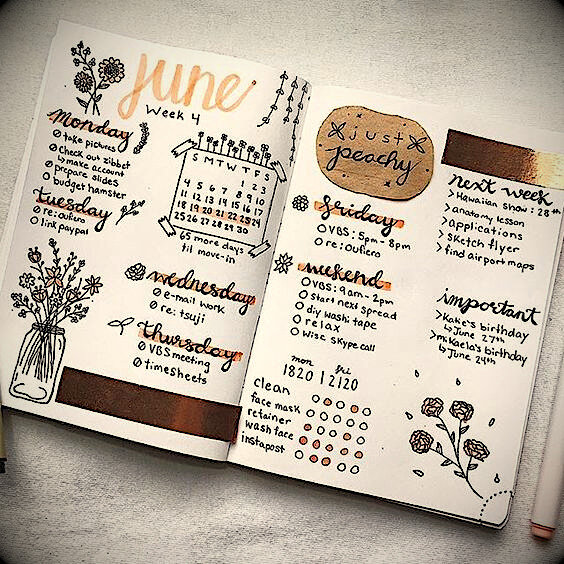 June
Week 4
Monday
take pictures
Check out zibbet
↳ make account
prepare slides
budget hamster
Tuesday
re: outiero
link paypal
S M T W T F S
1 2 3
4 5 6 7 8 9 10
11 12 13 14 15 16 17
18 19 20 21 22 23 24
25 26 27 28 29 30
65 more days
til move-in
wednesday
e-mail work
re: tsuji
thursday
VBS meeting
timesheets
just
peachy
friday
VBS: 5pm - 8pm
re: outiero
weekend
VBS: 9am - 2pm
Start next spread
diy washi tape
relax
Wise Skype call
mon fri
18 20 | 21 20
clean
face mask
retainer
wash face
instapost
next week
> Hawaiian show: 28th
> anatomy lesson
> applications
> Sketch flyer
> find airport maps
important
> Kate's birthday
↳ June 27th
> mikaela's birthday
↳ June 24th